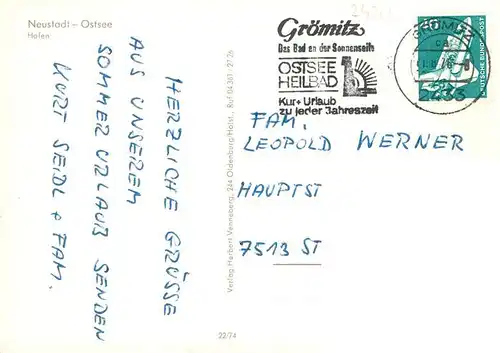 Neustadt – Ostsee
Hafen
HERZLICHE GRÜSSE
AUS UNSEREM
SOMMERURLAUB SENDEN
KURT SEIDL + FAM.
Verlag Harbert Venneberg, 244 Oldenburg/Holst., Ruf 04361 - 27 26
22/74
Grömitz
Das Bad an der Sonnenseite
OSTSEE
HEILBAD
Kur + Urlaub
zu jeder Jahreszeit
GRÖMITZ
2433
DEUTSCHE BUNDESPOST
FAM.
LEOPOLD WERNER
HAUPTST
7513 ST